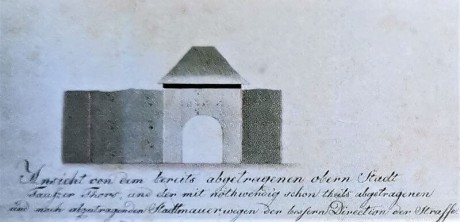 Ansicht von dem bereits abgetragenen obern Stadt
Thors, und der mit nothwendig schon theils abgetragenen
und noch abzutragenden Stadtmauer, wegen der bessern Direction der Strasse